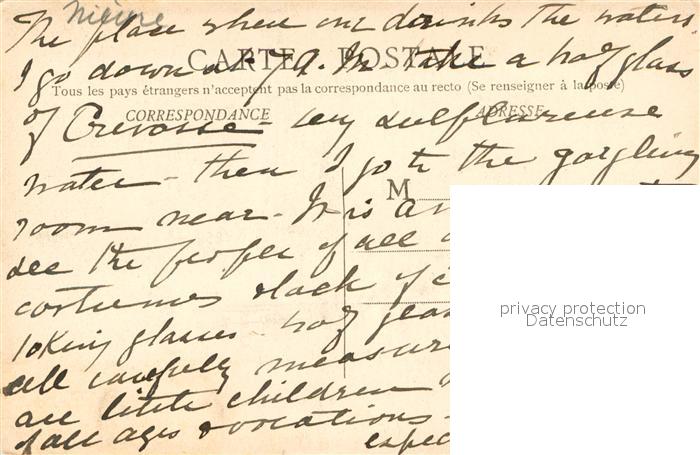 Nièvre
The place where one drinks the waters.
CARTE POSTALE
I go down at 7 A. M. take a half glass
Tous les pays étrangers n'acceptent pas la correspondance au recto (Se renseigner à la poste)
of Crevosse - very sulfureuse
CORRESPONDANCE ADRESSE
water - then I go to the gargling
M
room near - It is a
see the people of all
costumes & lack of
privacy protection
Datenschutz
glasses - half
all carefully measure
are little children
of all ages & vocations -
espec